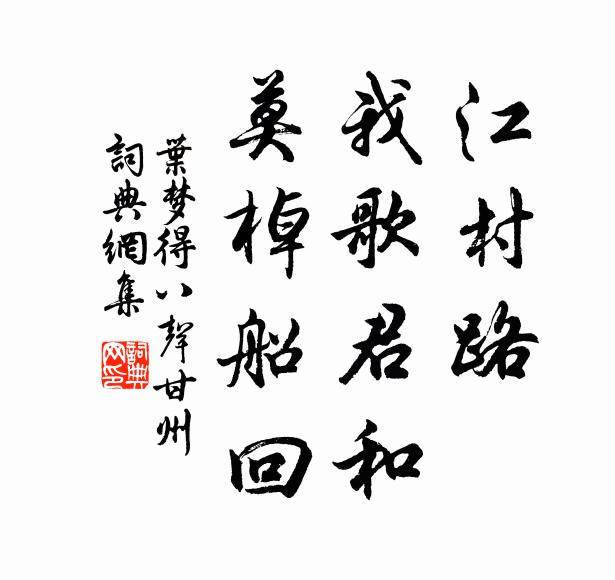 江村路
我歌君和
莫棹船回
葉梦得八聲甘州
詞典網集
詞典网印